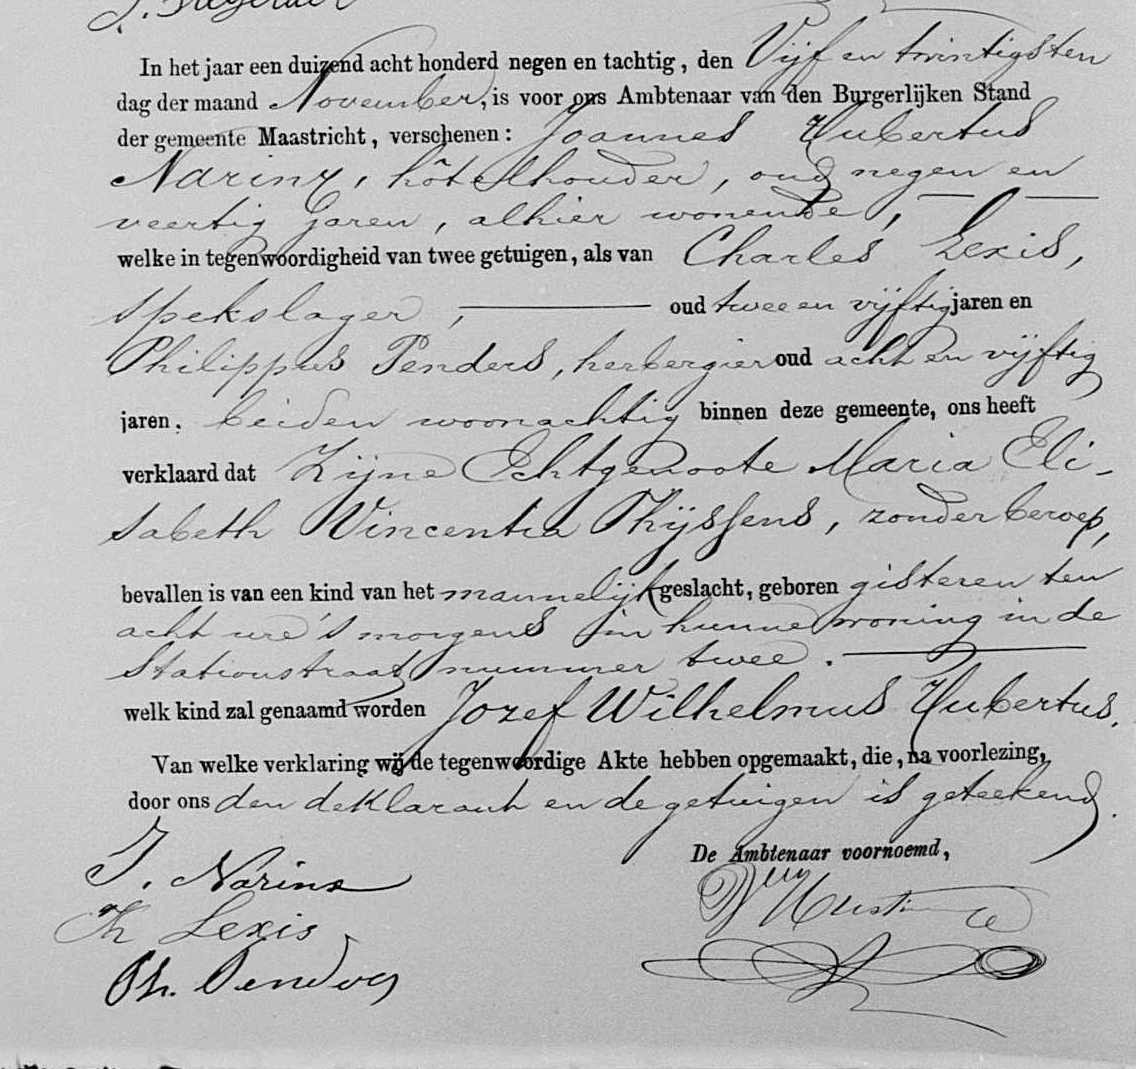 In het jaar een duizend acht honderd negen en tachtig, den Vijf en twintigsten
dag der maand November, is voor ons Ambtenaar van den Burgerlijken Stand
der gemeente Maastricht, verschenen: Joannes Hubertus
Narinx, hôtelhouder, oud negen en
veertig Jaren, alhier wonende,
welke in tegenwoordigheid van twee getuigen, als van Charles Lexis,
spekslager, oud twee en vijftig jaren en
Philippus Penders, herbergier oud acht en vijftig
jaren. beiden woonachtig binnen deze gemeente, ons heeft
verklaard dat Zijne Echtgenoote Maria Eli-
sabeth Vincentia Thijssens, zonder beroep,
bevallen is van een kind van het mannelijk geslacht, geboren gisteren ten
acht ure 's morgens in hunne woning in de
Stationstraat nummer twee.
welk kind zal genaamd worden Jozef Wilhelmus Hubertus.
Van welke verklaring wij de tegenwoordige Akte hebben opgemaakt, die, na voorlezing,
door ons den deklarant en de getuigen is geteekend.
De Ambtenaar voornoemd,
J. Narinx
Ch Lexis
Ph. Penders